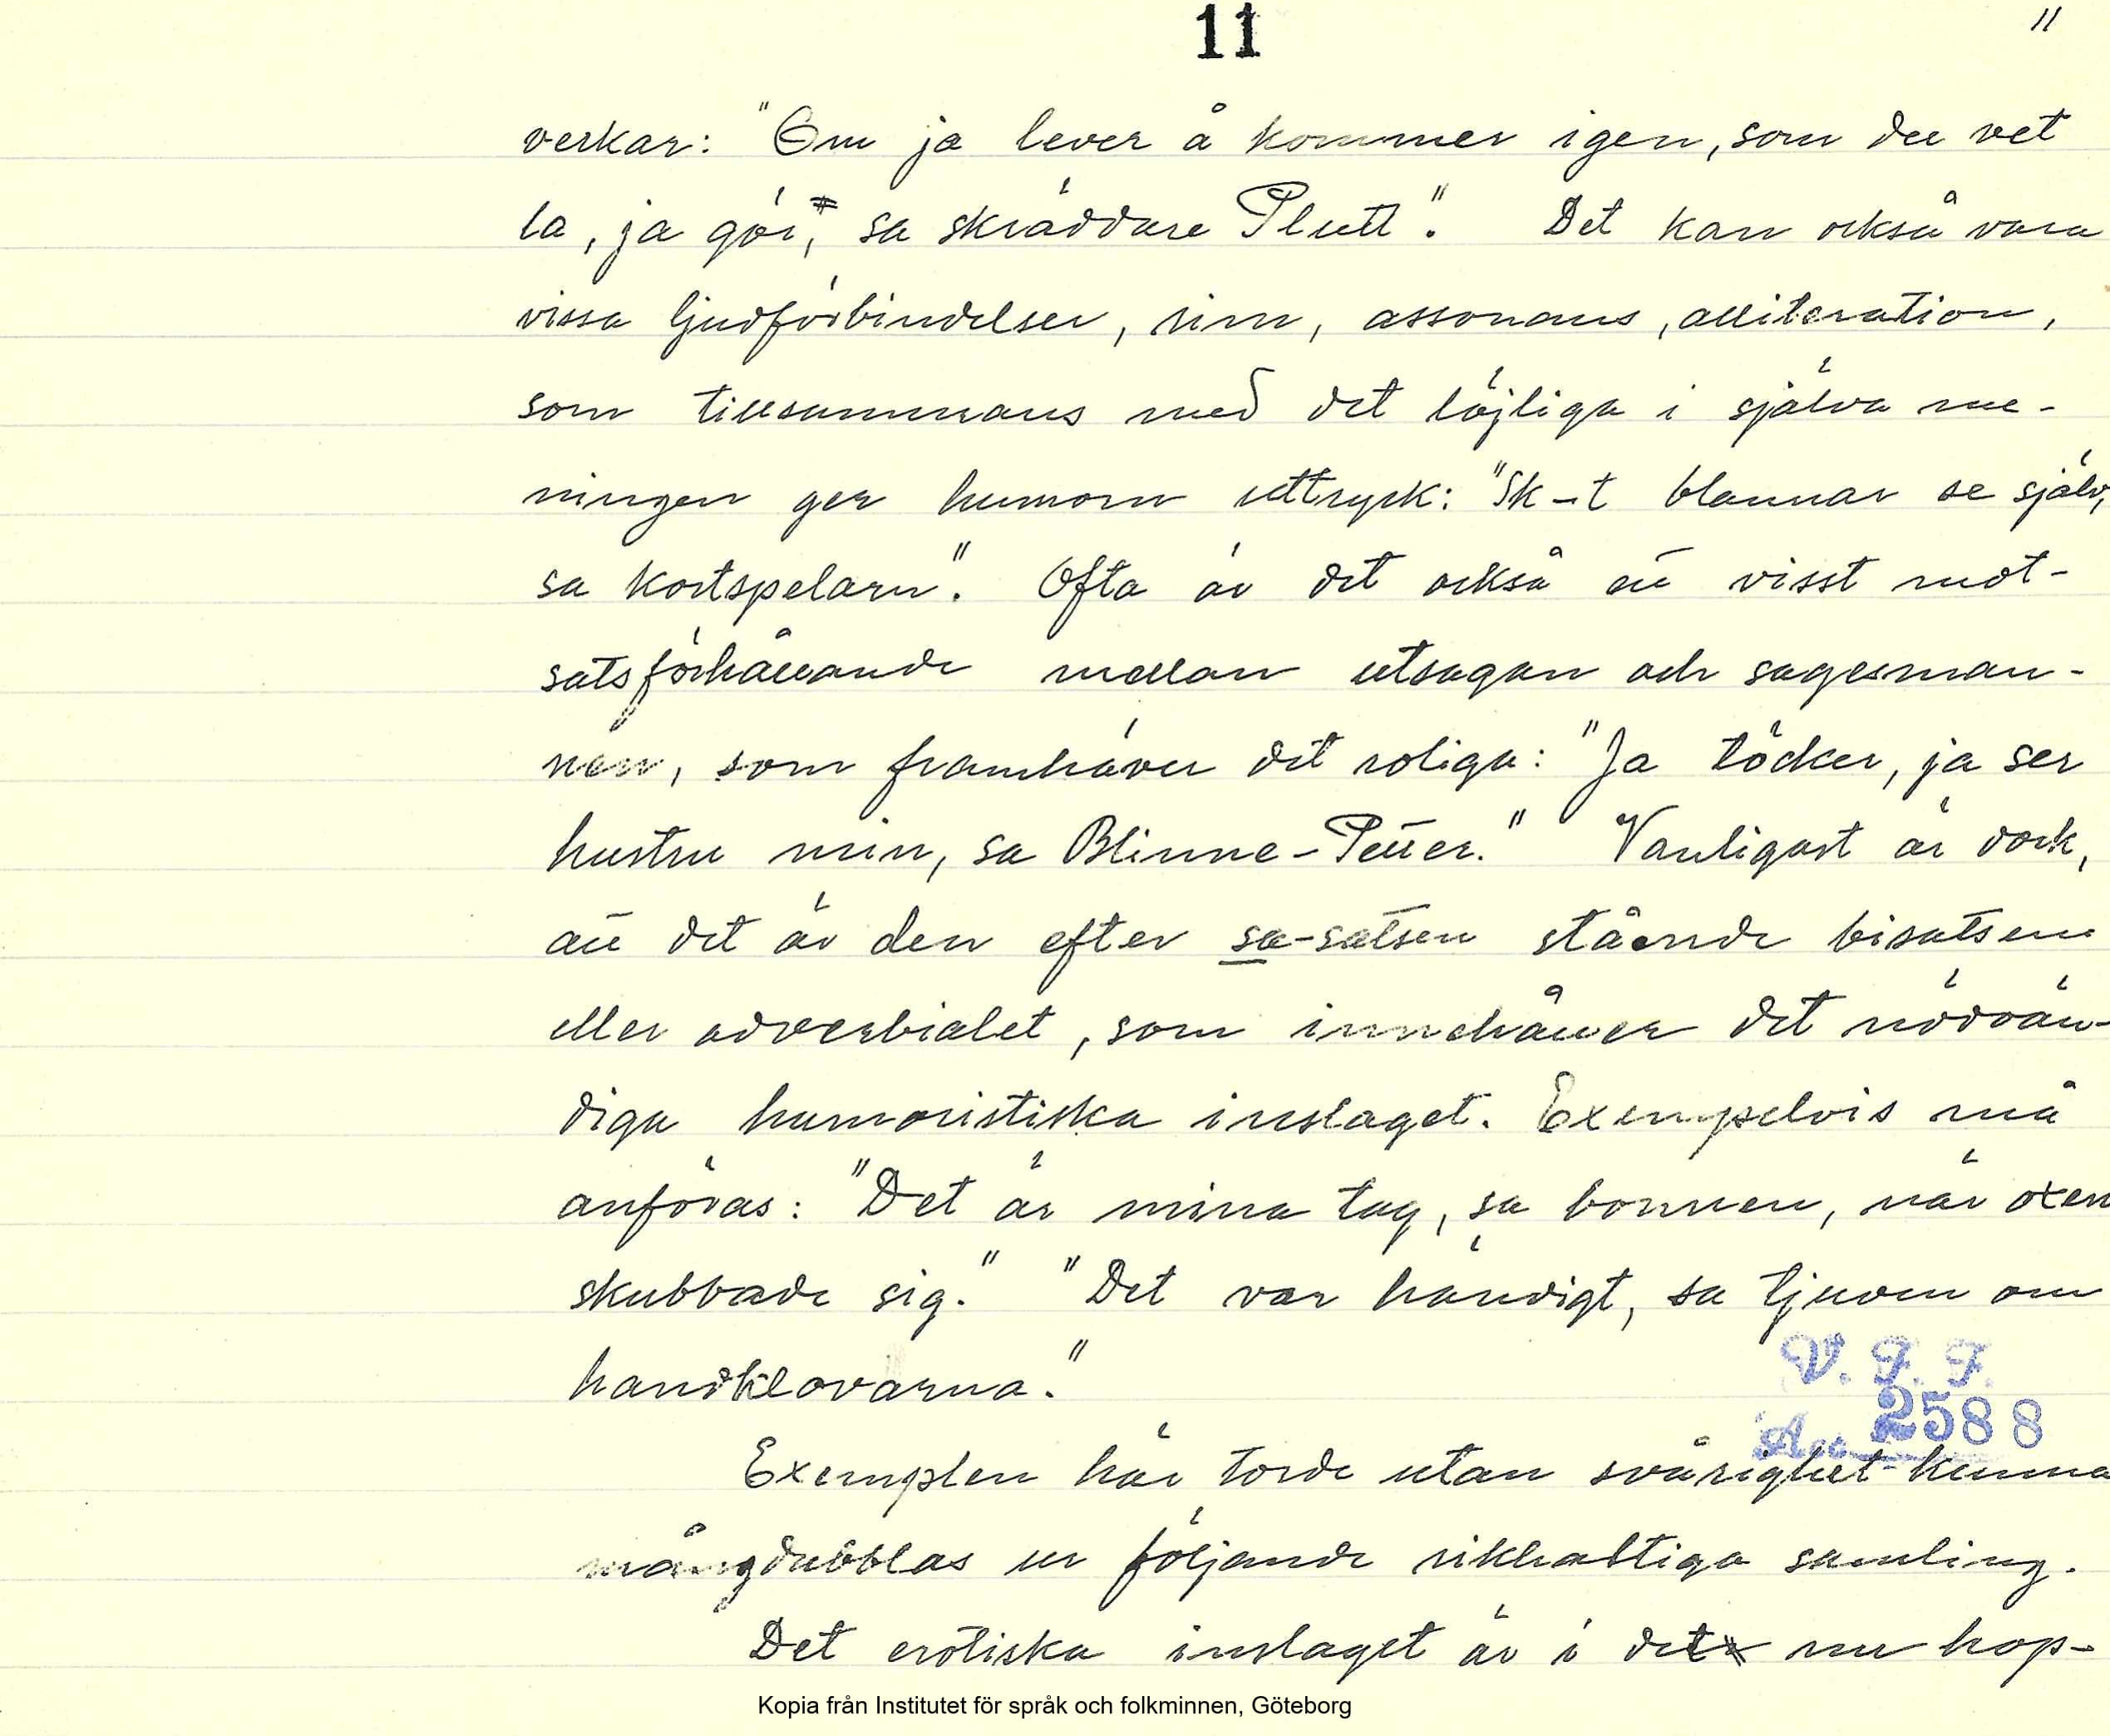 11
11
verkar: "Om ja lever å kommer igen, som du vet
la, ja gör, sa skräddare Plutt". Det kan också vara
vissa ljudförbindelser, rim, assonans, alliteration,
som tillsammans med det löjliga i själva me-
ningen ger humorn uttryck: "Sk-t blannar se själv,
sa kortspelarn". Ofta är det också ett visst mot-
satsförhållande mellan utsagan och sagesman-
nen, som framhäver det roliga: "Ja töcker, ja ser
hustru min, sa Blinne-Petter." Vanligast är dock,
att det är den efter sa-satsen stående bisatsen
eller adverbialet, som innehåller det nödvän-
diga humoristiska inslaget. Exempelvis må
anföras: "Det är mina tag, sa bonnen, när oxen
skubbade sig." "Det var händigt, sa tjuven om
handklovarna."
V. F. F.
Acc. 2588
Exemplen här torde utan svårighet kunna
mångdubblas ur följande rikhaltiga samling.
Det erotiska inslaget är i det nu hop-
Kopia från Institutet för språk och folkminnen, Göteborg